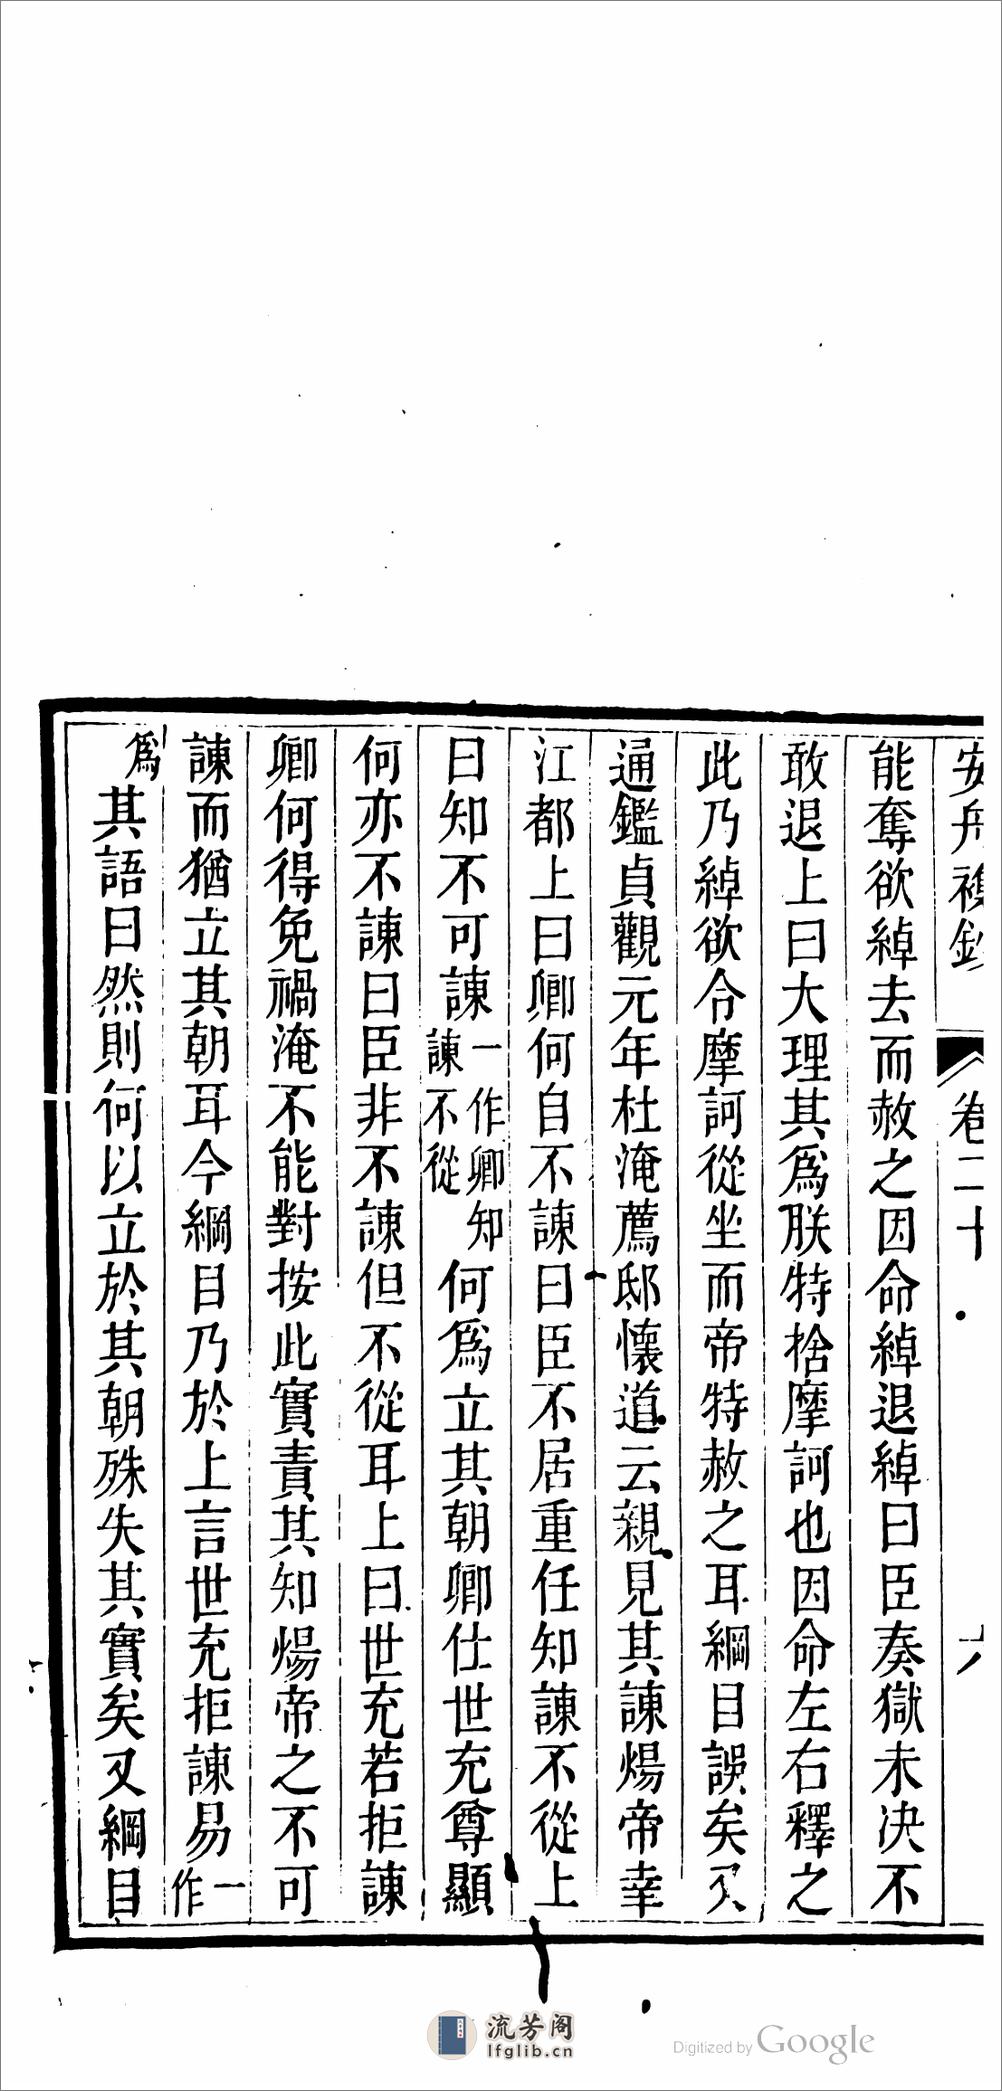 安舟襍鈔 卷二十 六
能奪欲綽去而赦之因命綽退綽曰臣奏獄未決不
敢退上曰大理其爲朕特捨摩訶也因命左右釋之
此乃綽欲令摩訶從坐而帝特赦之耳綱目誤矣又
通鑑貞觀元年杜淹薦邸懷道云親見其諫煬帝幸
江都上曰卿何自不諫曰臣不居重任知諫不從上
曰知不可諫一作卿知諫不從何爲立其朝卿仕世充尊顯
何亦不諫曰臣非不諫但不從耳上曰世充若拒諫
卿何得免禍淹不能對按此實責其知煬帝之不可
諫而猶立其朝耳今綱目乃於上言世充拒諫易一作
爲其語曰然則何以立於其朝殊失其實矣又綱目
流芳阁
lfglib.cn
Digitized by Google